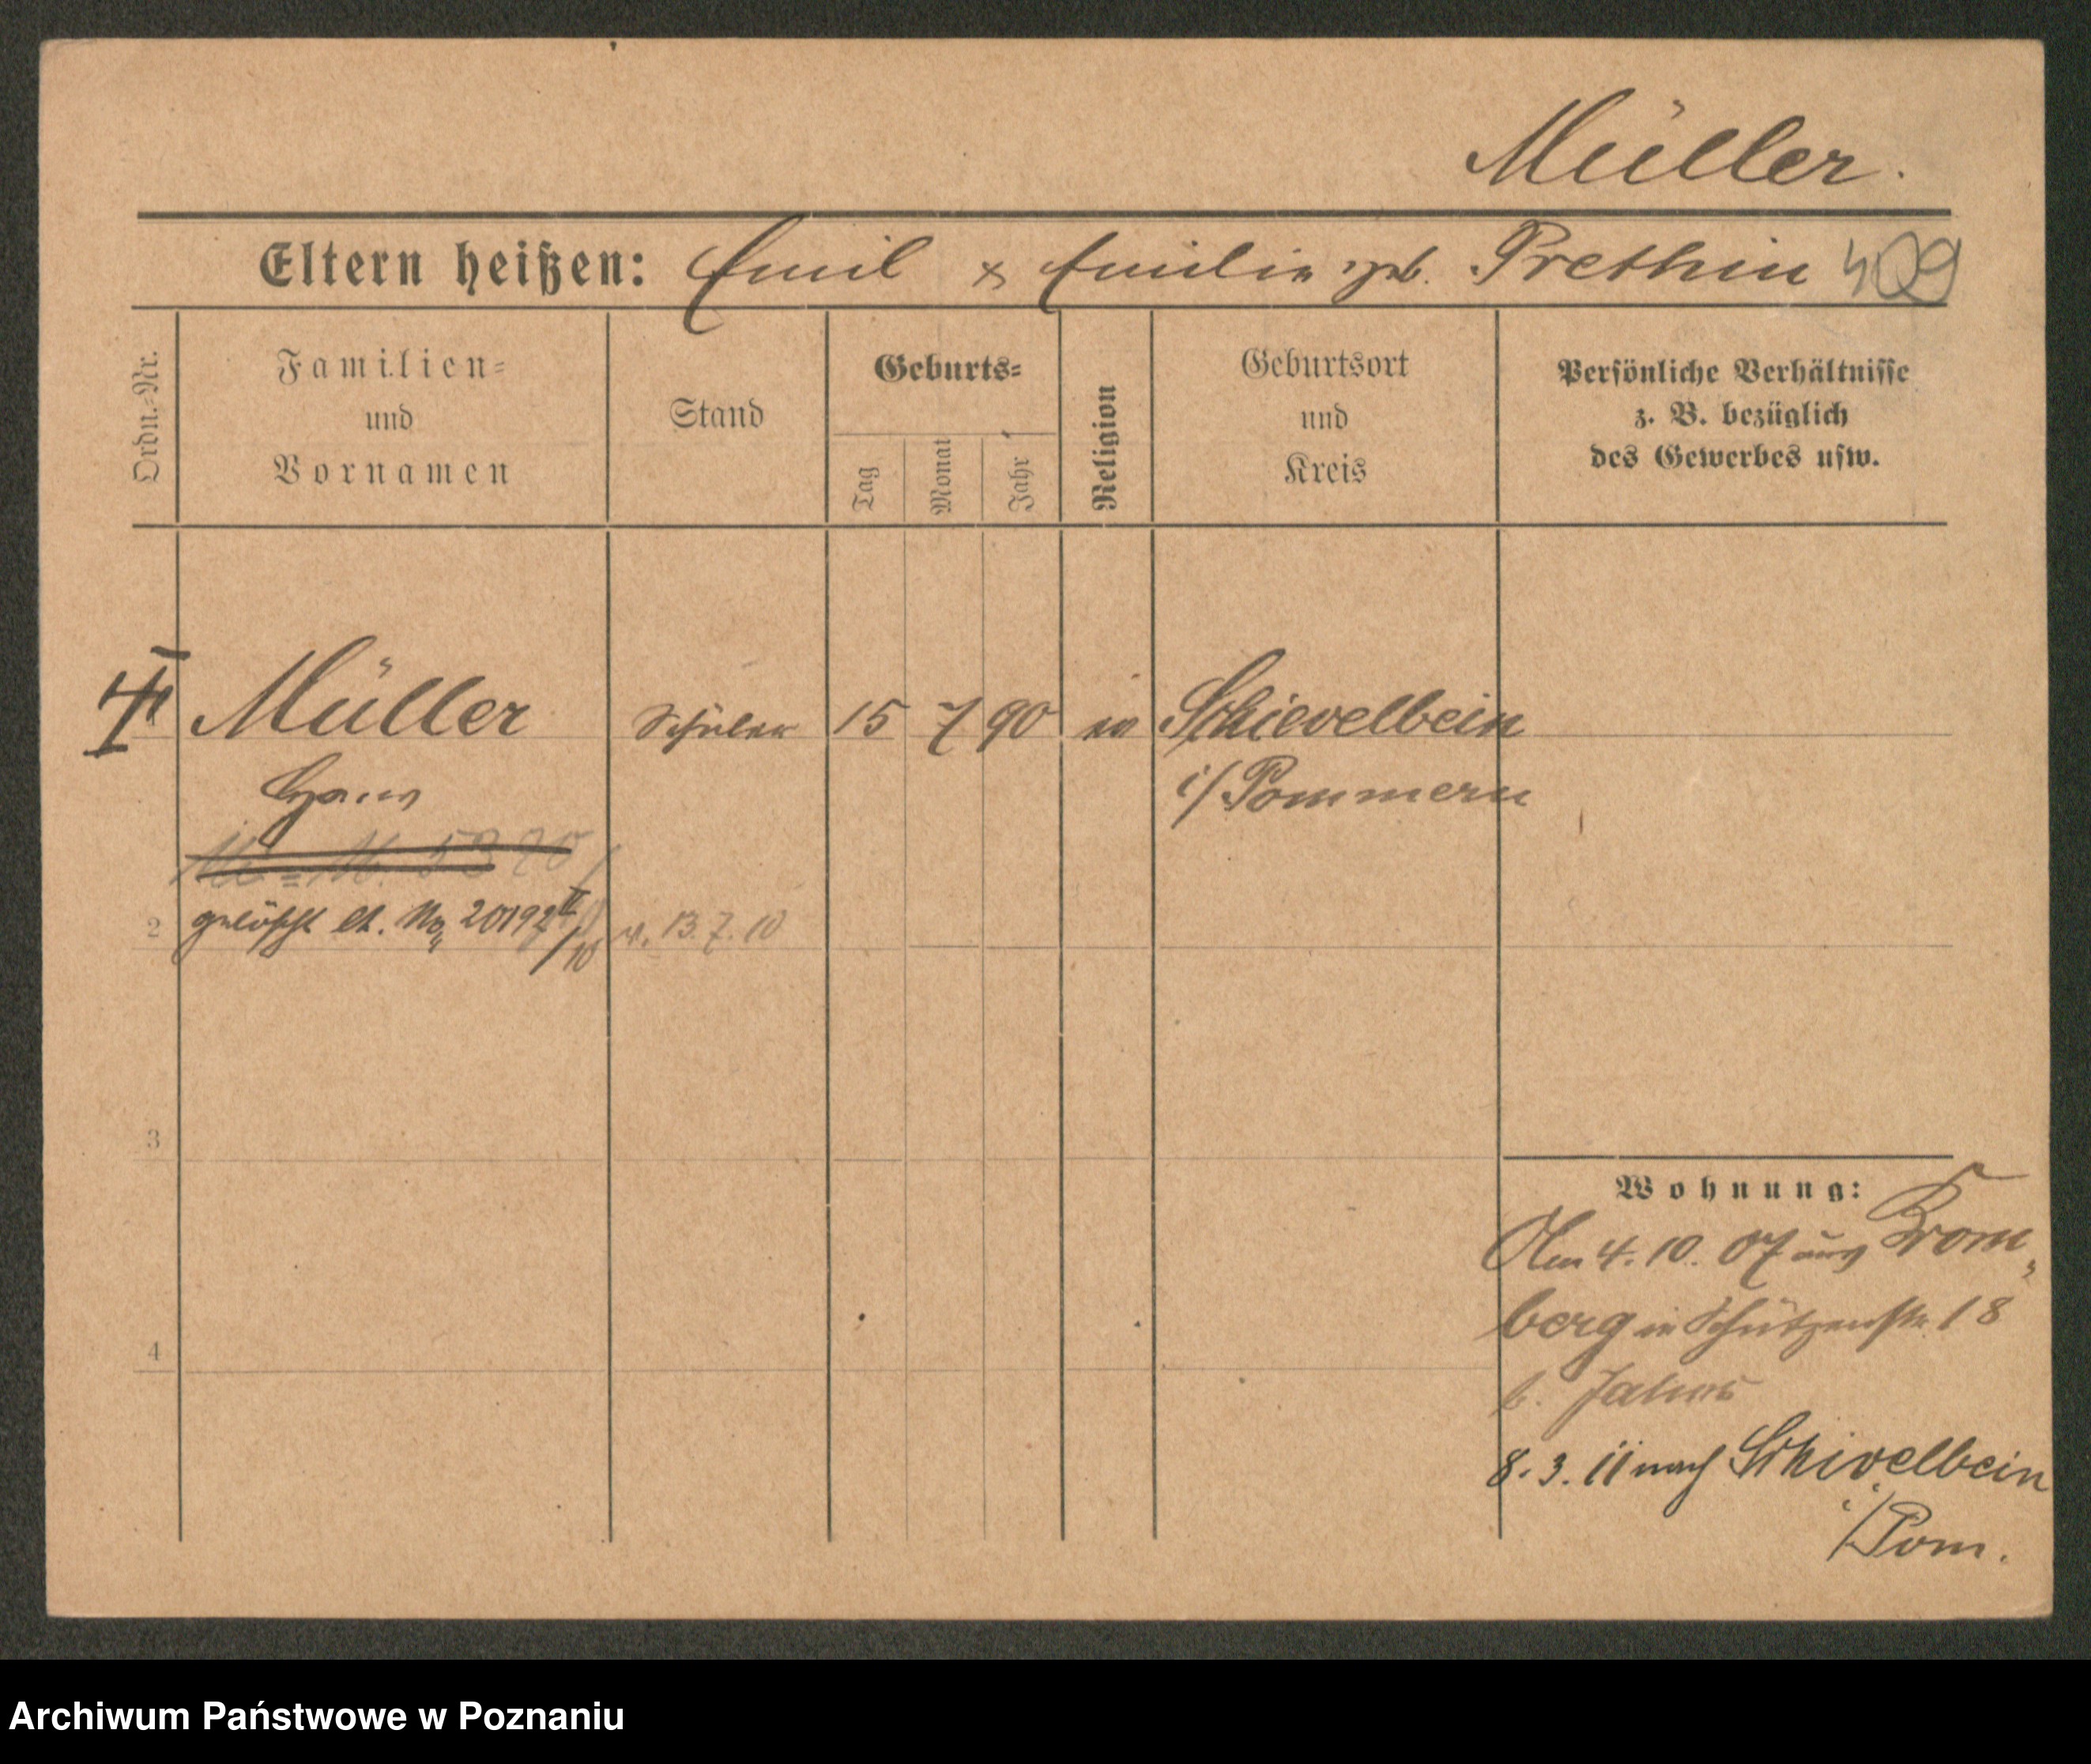 Müller.
Eltern heißen: Emil & Emilie geb. Prethin 409
Ordn.-Nr.
Familien-
und
Vornamen
Stand
Geburts-
Tag
Monat
Jahr
Religion
Geburtsort
und
Kreis
Persönliche Verhältnisse
z. B. bezüglich
des Gewerbes usw.
Müller Schüler 15 7 90 ev Schievelbein
Hans i/Pommern
2 gelöscht lt. No 20192 13.7.10
3
4
Wohnung:
Am 4. 10. 07 aus Brom-
berg in Schützenstr. 18
b.
8. 3. 11 nach Schivelbein
i/Pom.
Archiwum Państwowe w Poznaniu